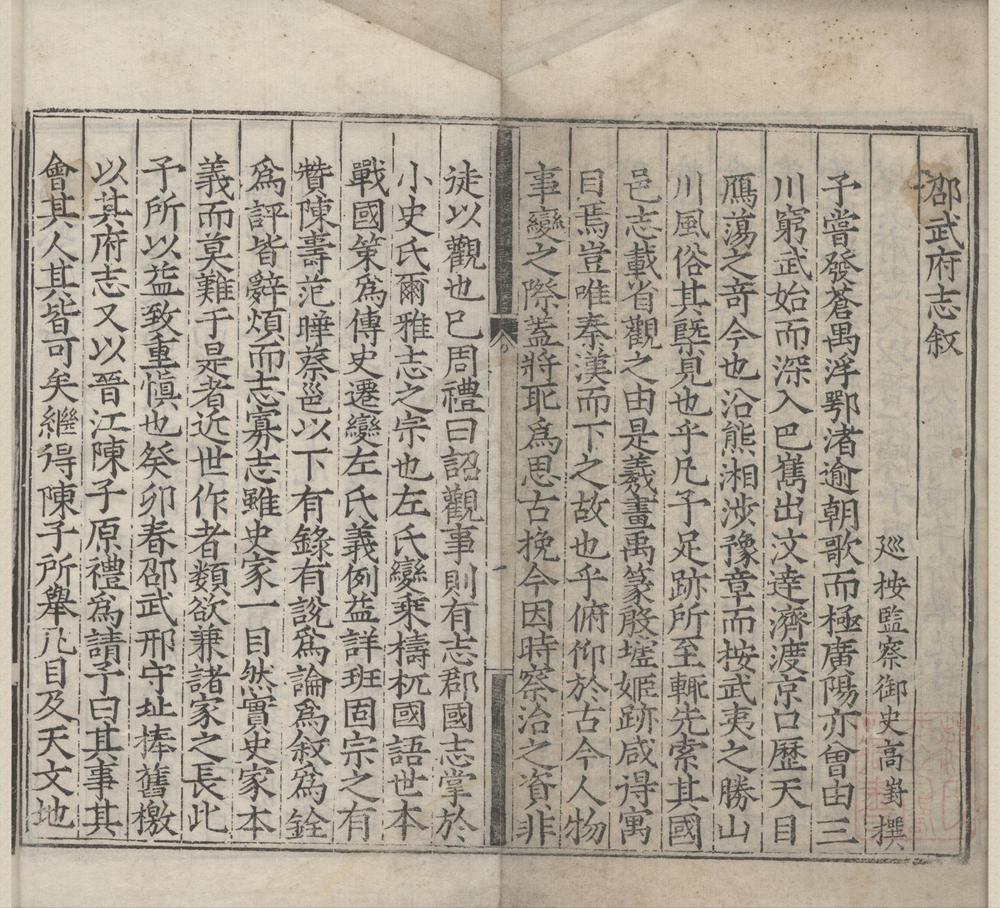 邵武府志叙
廵按監察御史高對撰
予嘗發蒼禺浮鄂渚逾朝歌而極廣陽亦曾由三
川窮武始而深入巴嶲出汶逹濟渡京口歷天目
鴈蕩之竒今也沿熊湘涉豫章而按武夷之勝山
川風俗其槩見也乎凡予足跡所至輒先索其國
邑志載省觀之由是羲畫禹篆殷墟姬跡咸得寓
目焉豈唯秦漢而下之故也乎俯仰於古今人物
事變之際蓋將耻爲思古挽今因時察治之資非
徒以觀也已周禮曰詔觀事則有志郡國志掌於
小史氏爾雅志之宗也左氏變乘檮杌國語世本
戰國策爲傳史遷變左氏義例益詳班固宗之有
贊陳壽范曄蔡邕以下有錄有說爲論爲叙爲銓
爲評皆辭煩而志寡志雖史家一目然實史家本
義而莫難于是者近世作者類欲兼諸家之長此
予所以益致重愼也癸卯春邵武邢守址捧舊檄
以其府志又以晉江陳子原禮爲請予曰其事其
會其人其皆可矣繼得陳子所舉凡目及天文地